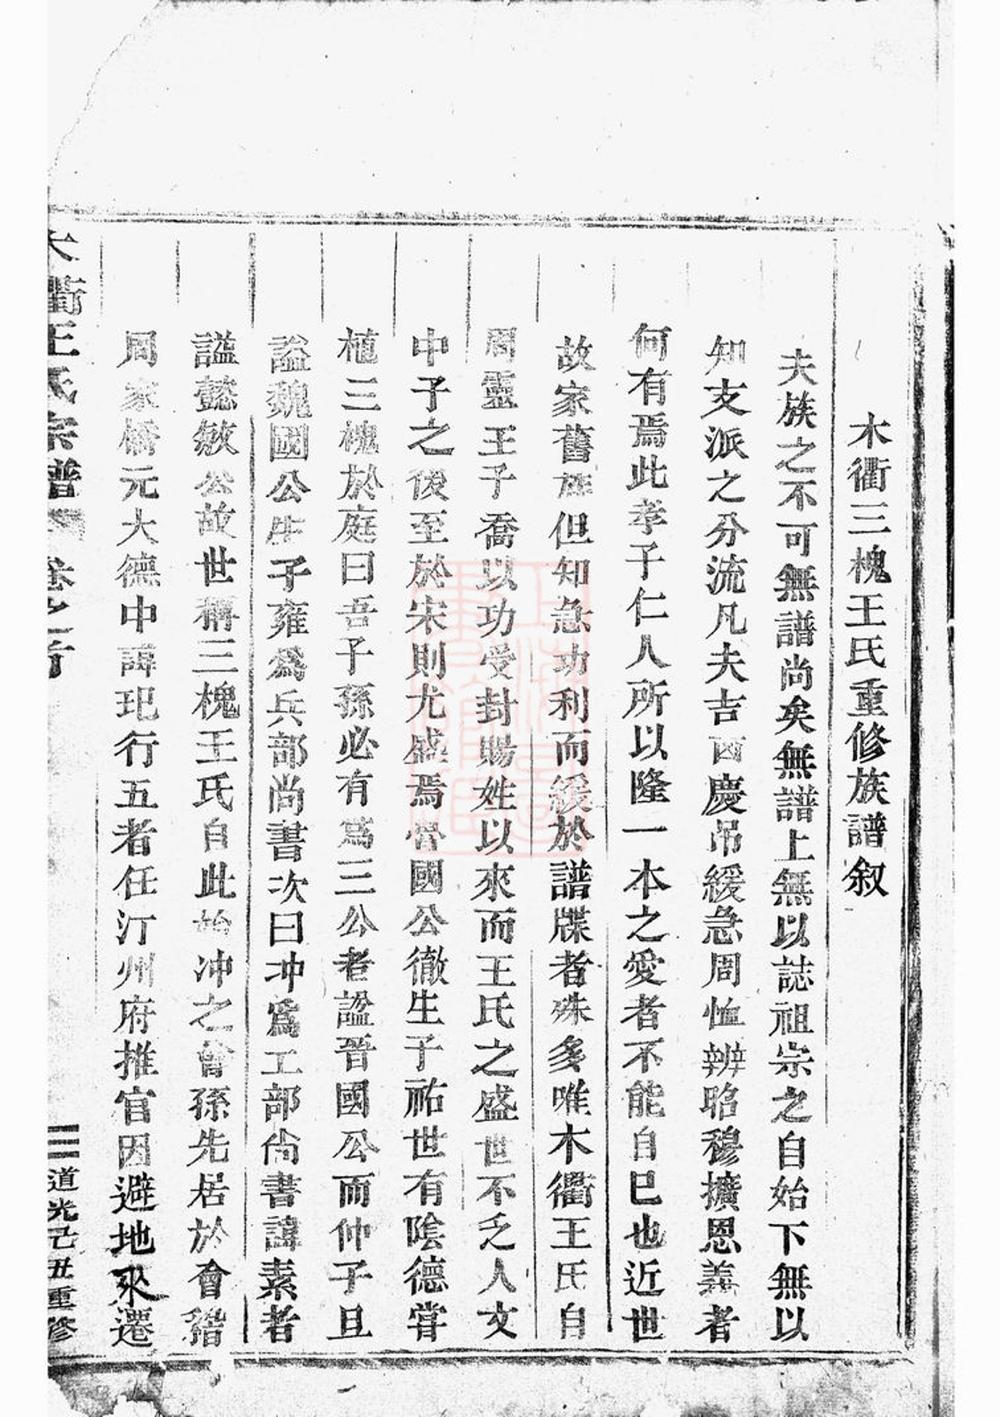 木衢三槐王氏重修族譜叙
夫族之不可無譜尚矣無譜上無以誌祖宗之自始下無以
知支派之分流凡夫吉凶慶吊緩急周恤辨昭穆擴恩義者
何有焉此孝子仁人所以隆一本之愛者不能自巳也近世
故家舊族但知急功利而緩於譜牒者殊多唯木衢王氏自
周靈王子喬以功受封賜姓以來而王氏之盛世不乏人文
中子之後至於宋則尤盛焉晉國公徹生子祐世有陰德嘗
植三槐於庭曰吾子孫必有為三公者諡晉國公而仲子旦
謚魏國公生子雍爲兵部尚書次曰冲爲工部尚書諱素者
謚懿敏公故世稱三槐王氏自此始冲之曾孫先居於會稽
周家橋元大德中諱玘行五者任汀州府推官因避地來遷
木衢王氏宗譜 卷之首 道光己丑重修